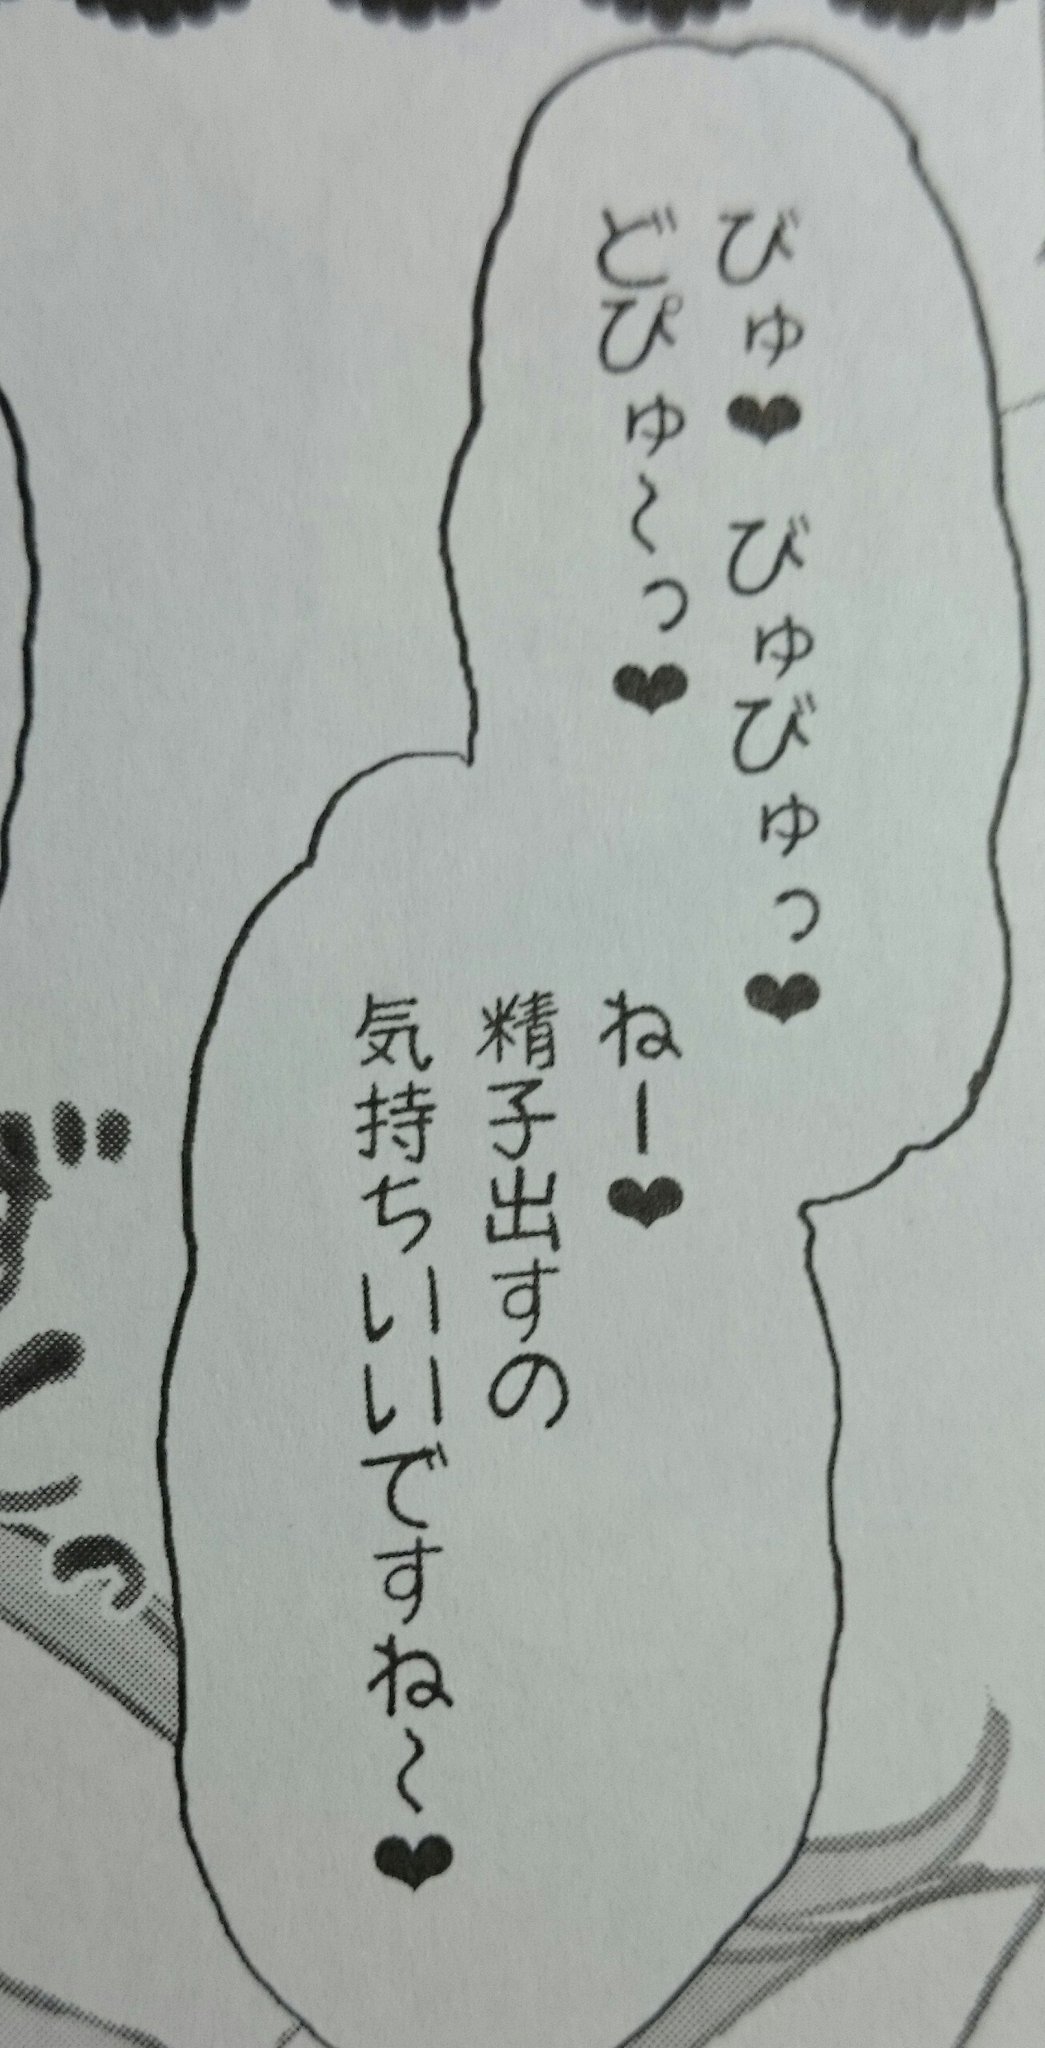 びゅ♥ びゅびゅっ♥
どぴゅ~っ♥
ねー♥
精子出すの
気持ちいいですね~♥